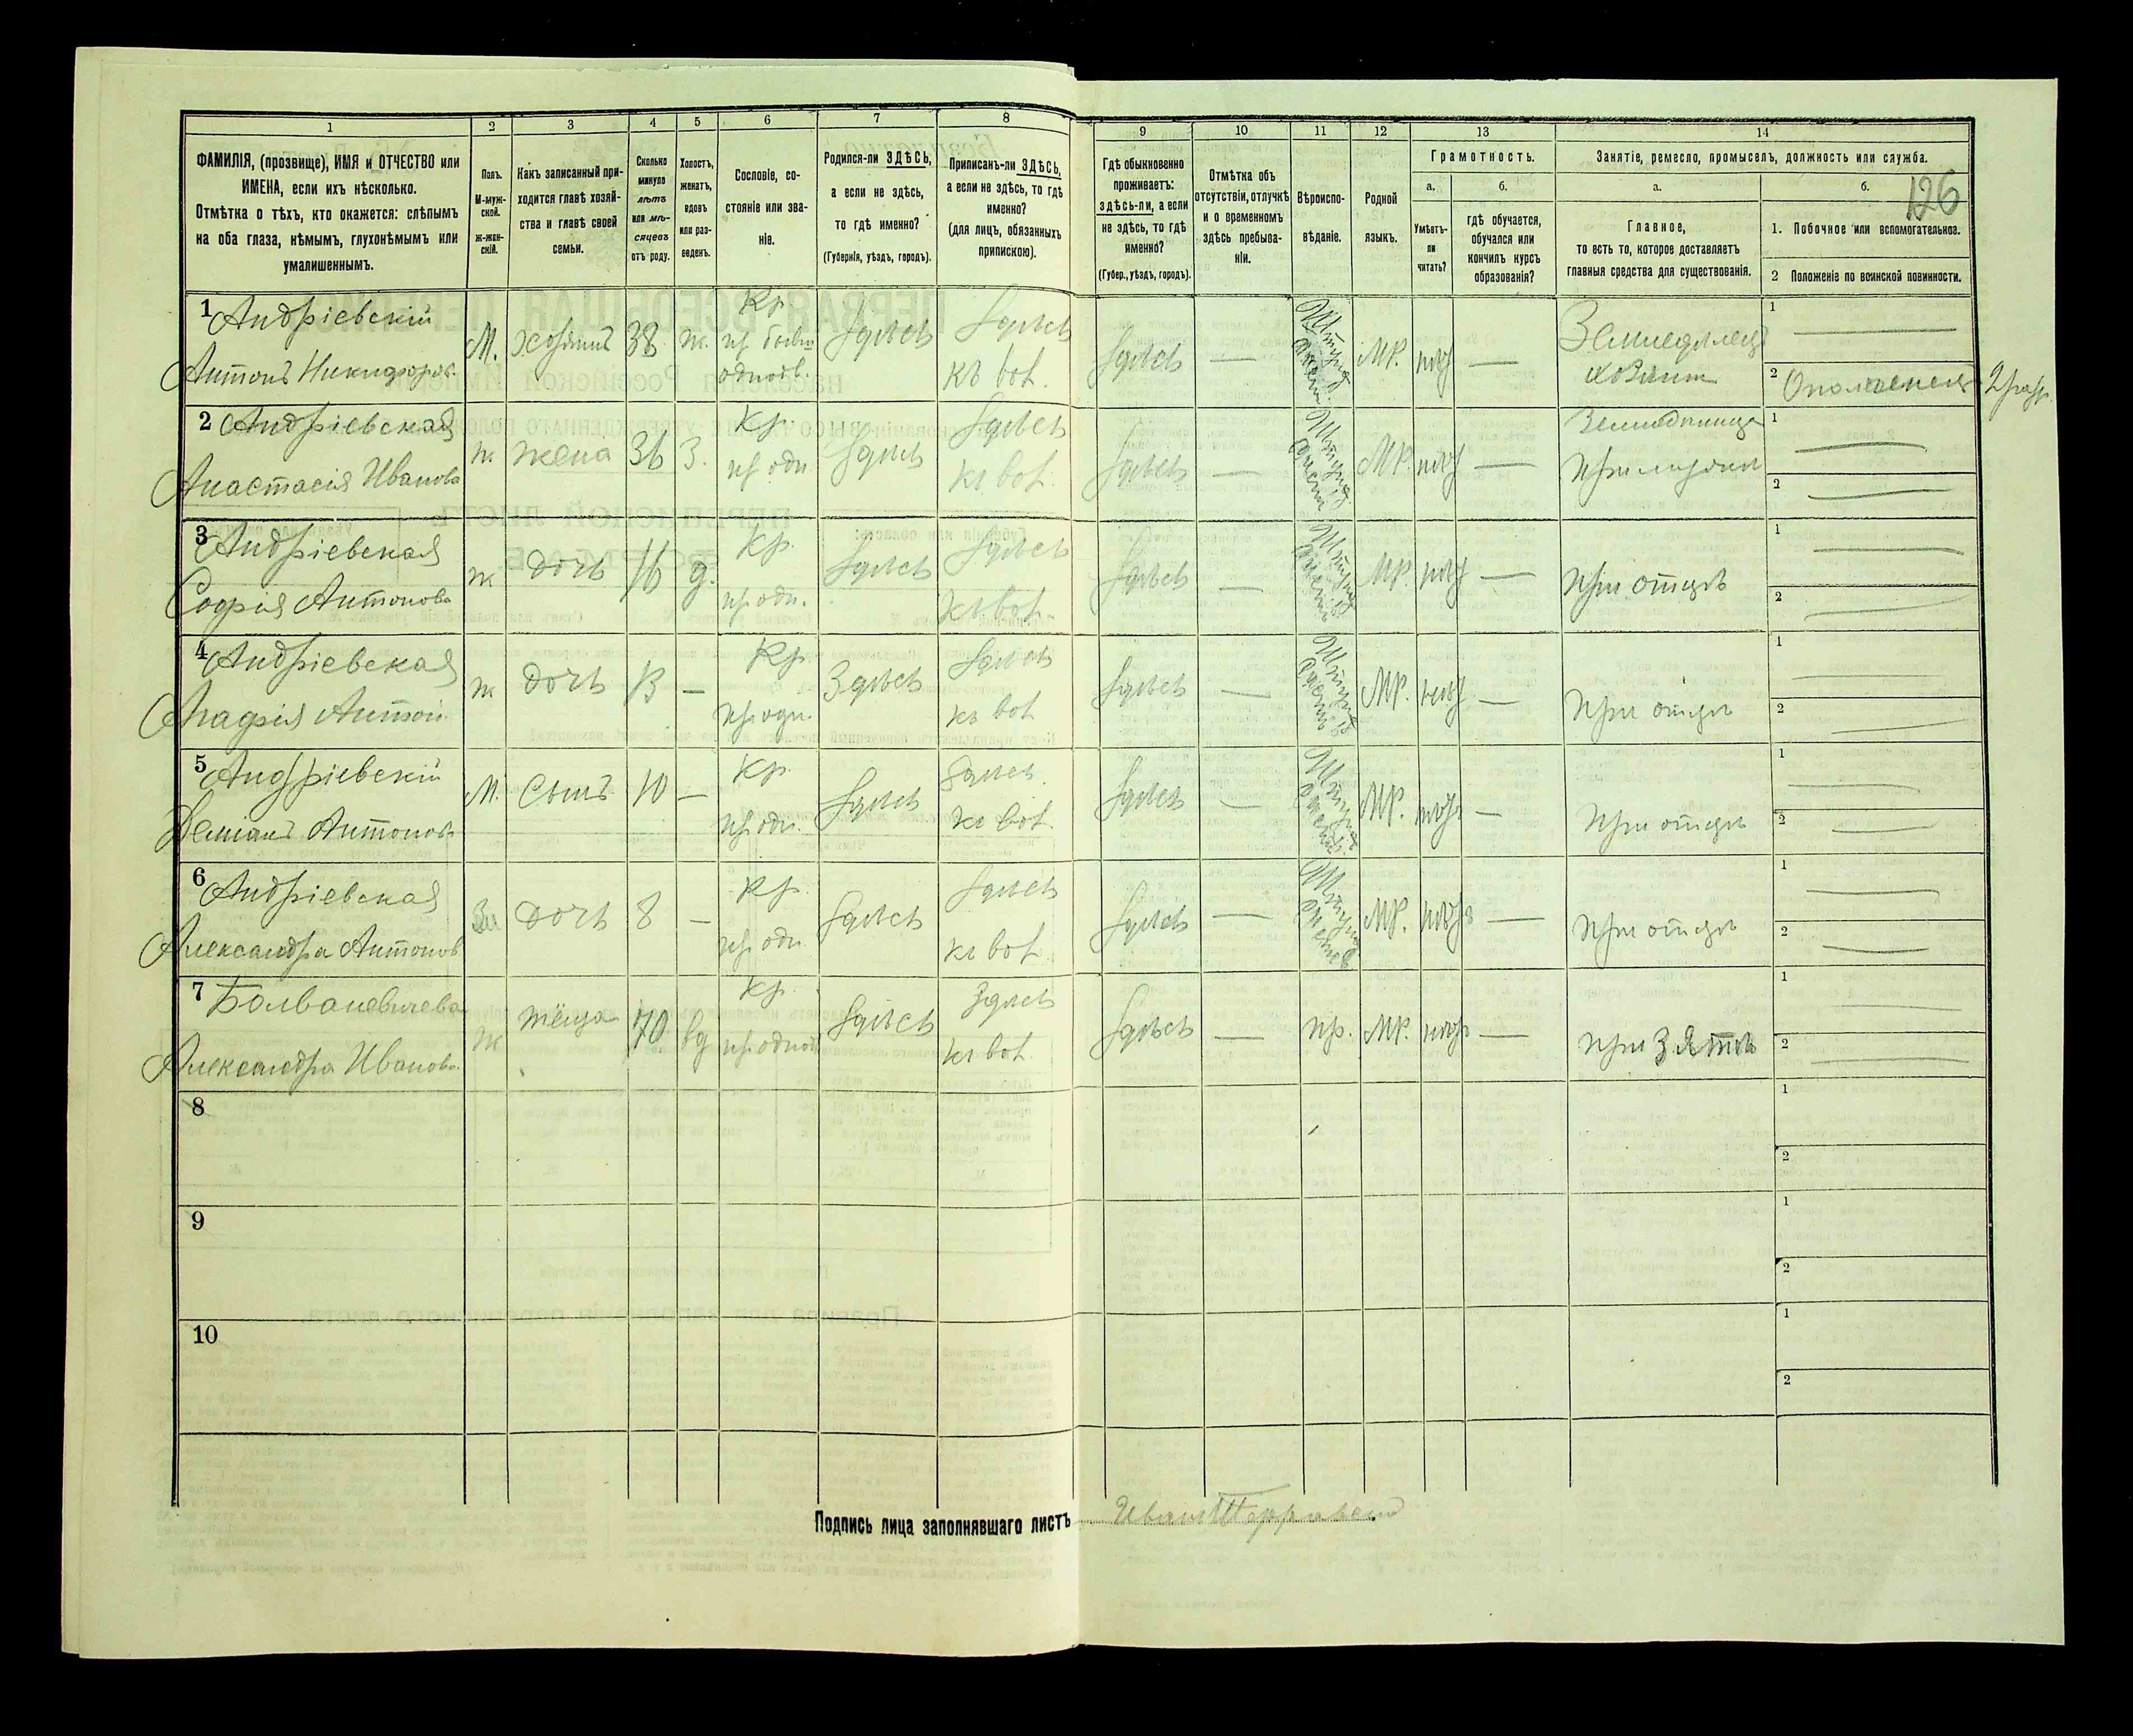 1 2 3 4 5 6 7 8 9 10 11 12 13 14
ФАМИЛІЯ, (прозвище), ИМЯ и ОТЧЕСТВО или
ИМЕНА, если ихъ нѣсколько.
Отмѣтка о тѣхъ, кто окажется: слѣпымъ
на оба глаза, нѣмымъ, глухонѣмымъ или
умалишеннымъ.
Полъ.
М-муж-
ской.
Ж-жен-
скій.
Какъ записанный при-
ходится главѣ хозяй-
ства и главѣ своей
семьи.
Сколько
минуло
лѣтъ
или мѣ-
сяцевъ
отъ роду.
Холостъ,
женатъ,
вдовъ
или раз-
веденъ.
Сословіе, со-
стояніе или зва-
ніе.
Родился-ли ЗДѢСЬ,
а если не здѣсь,
то гдѣ именно?
(Губернія, уѣздъ, городъ).
Приписанъ-ли ЗДѢСЬ,
а если не здѣсь, то гдѣ
именно?
(для лицъ, обязанныхъ
припискою).
Гдѣ обыкновенно
проживаетъ:
здѣсь-ли, а если
не здѣсь, то гдѣ
именно?
(Губер., уѣздъ, городъ).
Отмѣтка объ
отсутствіи, отлучкѣ
и о временномъ
здѣсь пребыва-
ніи.
Вѣроиспо-
вѣданіе.
Родной
языкъ.
Грамотность.
а.
Умѣетъ-
ли
читать?
б.
гдѣ обучается,
обучался или
кончилъ курсъ
образованія?
Занятіе, ремесло, промыселъ, должность или служба.
а.
Главное,
то есть то, которое доставляетъ
главныя средства для существованія.
б.
126
1. Побочное или вспомогательное.
2 Положеніе по воинской повинности.
1 Андріевскій Кр. Здѣсь 1
М. хозяинъ 38 ж. Здѣсь Здѣсь — МР. — Земледѣлецъ
Антонъ Никифоров. къ вол. хозяин 2 Ополченец 2 разр.
2 Андріевская Кр. Здѣсь 1
ж. жена 36 З. пр. одн Здѣсь Здѣсь — МР. —
Анастасія Иванова къ вол. 2
3 Андріевская Кр. Здѣсь 1
ж дочь 16 д. Здѣсь Здѣсь — МР. — при отцѣ
Софія Антонова пр. одн. къ вол. 2
4 Андріевская Кр. Здѣсь 1
ж дочь 13 — Здѣсь Здѣсь — МР. — при отцѣ
Агафія Антон. пр. одн. къ вол 2
5 Андріевскій Кр. Здѣсь 1
М. Сынъ 10 — Здѣсь Здѣсь — МР. — при отцѣ
Деміанъ Антонов. пр. одн. къ вол. 2
6 Андріевская Кр. Здѣсь 1
дочь 8 — Здѣсь Здѣсь — МР. — при отцѣ
Александра Антонов пр. одн къ вол 2
7 Кр. Здѣсь 1
ж тёща 70 вд Здѣсь Здѣсь — пр. МР. — при Зятѣ
Александра Иванова къ вол. 2
8 1
2
9 1
2
10 1
2
Подпись лица заполнявшаго листъ Иванъ